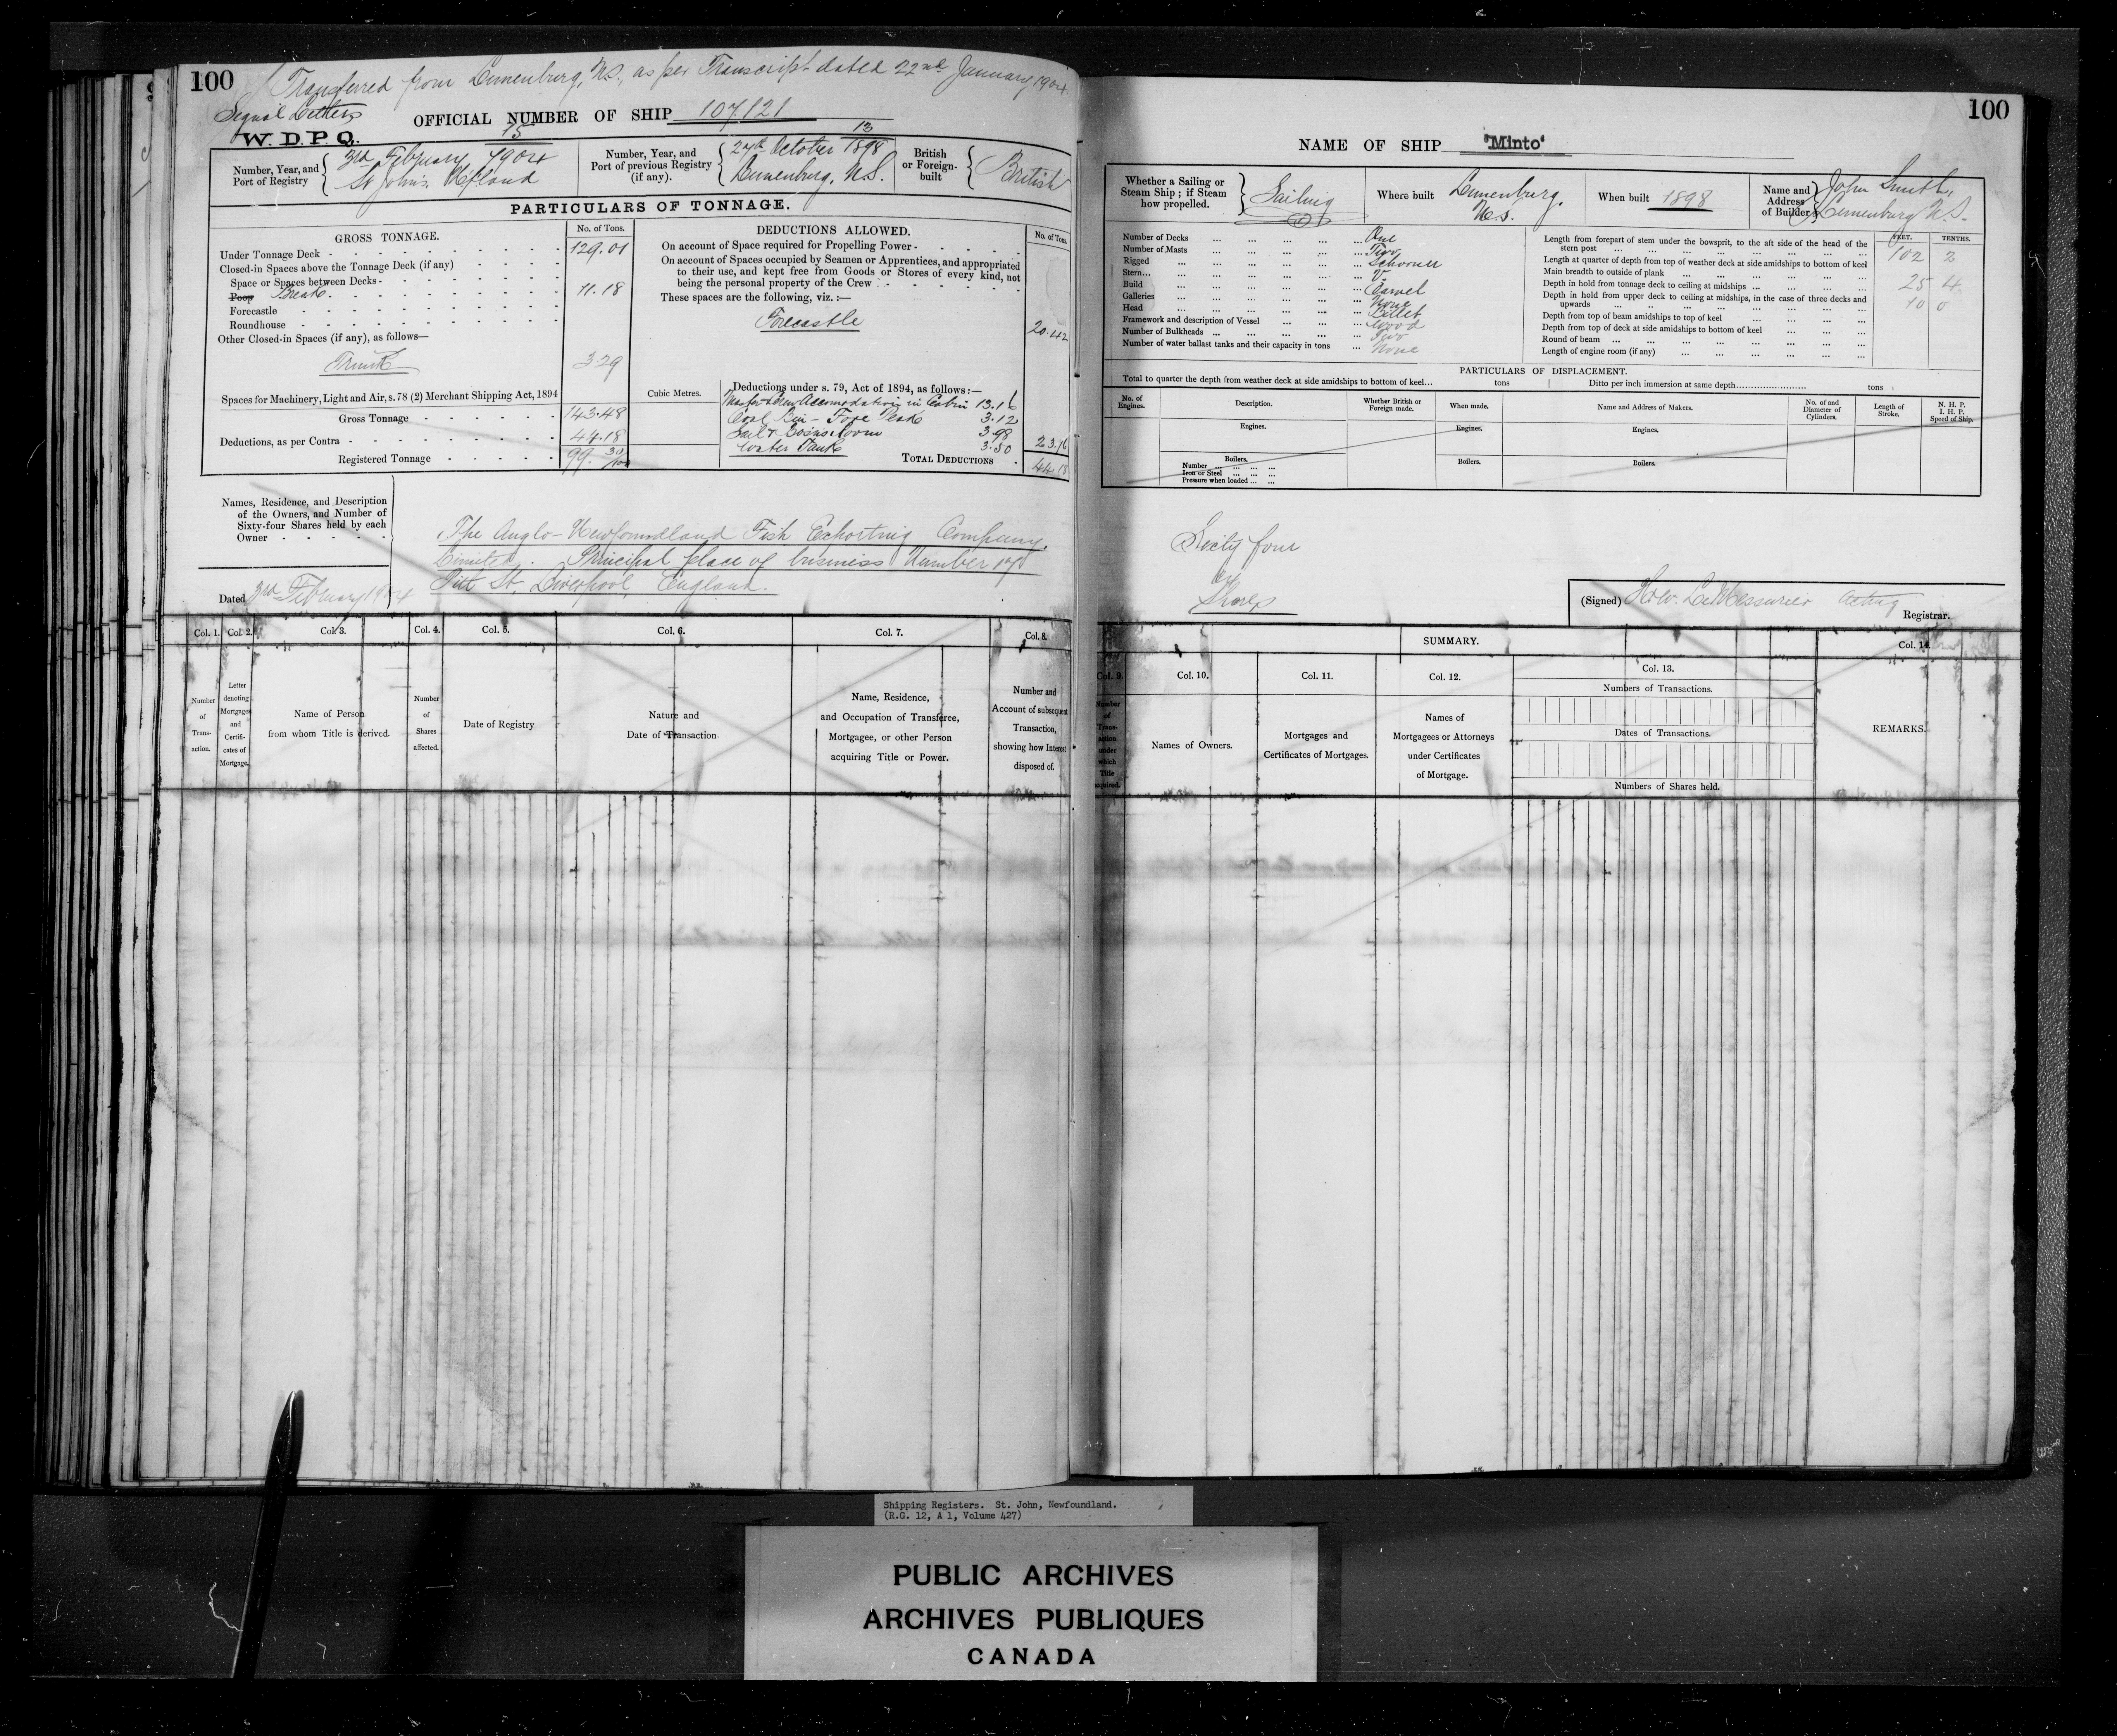 100
Transferred from Lunenburg, N.S., as per Transcript dated 22nd January 1904.
Signal Letters
W. D. P. Q.
OFFICIAL NUMBER OF SHIP 107,121
Number, Year, and Port of Registry
15
3rd February 1904
St John's, Nfland
Number, Year, and Port of previous Registry (if any).
13
27th October 1898
Lunenburg, N.S.
British or Foreign-built
British
PARTICULARS OF TONNAGE.
GROSS TONNAGE.
No. of Tons.
Under Tonnage Deck - 129.01
Closed-in Spaces above the Tonnage Deck (if any)
Space or Spaces between Decks -
Poop Break - 11.18
Forecastle
Roundhouse
Other Closed-in Spaces (if any), as follows—
Trunk 3.29
Spaces for Machinery, Light and Air, s. 78 (2) Merchant Shipping Act, 1894
Gross Tonnage - 143.48
Deductions, as per Contra - 44.18
Registered Tonnage - 99. 30/100
DEDUCTIONS ALLOWED.
No. of Tons.
On account of Space required for Propelling Power -
On account of Spaces occupied by Seamen or Apprentices, and appropriated
to their use, and kept free from Goods or Stores of every kind, not
being the personal property of the Crew -
These spaces are the following, viz. :—
Forecastle 20.42
Cubic Metres.
Deductions under s. 79, Act of 1894, as follows :—
Master & Crew Accomodation in Cabin 13.16
Coal Bin - Fore Peak 3.12
Sail & Bosns Room 3.98
Water Tank 3.50
23.76
TOTAL DEDUCTIONS - 44.18
Names, Residence, and Description
of the Owners, and Number of
Sixty-four Shares held by each
Owner
The Anglo-Newfoundland Fish Exporting Company,
Limited. Principal place of business Number 17
Pitt St, Liverpool, England.
Dated 3rd February 1904
Col. 1.
Number of Transaction.
Col. 2.
Letter denoting Mortgages and Certificates of Mortgage.
Col. 3.
Name of Person from whom Title is derived.
Col. 4.
Number of Shares affected.
Col. 5.
Date of Registry
Col. 6.
Nature and Date of Transaction.
Col. 7.
Name, Residence,
and Occupation of Transferee,
Mortgagee, or other Person
acquiring Title or Power.
Col. 8.
Number and
Account of subsequent
Transaction,
showing how Interest
disposed of.
100
NAME OF SHIP "Minto"
Whether a Sailing or
Steam Ship ; if Steam
how propelled.
Sailing
Where built
Lunenburg,
N.S.
When built 1898
Name and Address of Builder
John Smith,
Lunenburg N.S.
Number of Decks ... One
Number of Masts ... Two
Rigged ... Schooner
Stern ... V.
Build ... Carvel
Galleries ... None
Head ... Billet
Framework and description of Vessel ... Wood
Number of Bulkheads ... Two
Number of water ballast tanks and their capacity in tons ... None
FEET. TENTHS.
Length from forepart of stem under the bowsprit, to the aft side of the head of the
stern post ... 102 2
Length at quarter of depth from top of weather deck at side amidships to bottom of keel
Main breadth to outside of plank ... 25 4
Depth in hold from tonnage deck to ceiling at midships ... 10 0
Depth in hold from upper deck to ceiling at midships, in the case of three decks and
upwards ...
Depth from top of beam amidships to top of keel ...
Depth from top of deck at side amidships to bottom of keel ...
Round of beam ...
Length of engine room (if any) ...
PARTICULARS OF DISPLACEMENT.
Total to quarter the depth from weather deck at side amidships to bottom of keel... tons
Ditto per inch immersion at same depth... tons
No. of Engines.
Description.
Whether British or Foreign made.
When made.
Name and Address of Makers.
No. of and Diameter of Cylinders.
Length of Stroke.
N. H. P.
I. H. P.
Speed of Ship.
Engines.
Engines.
Engines.
Boilers.
Number ...
Iron or Steel ...
Pressure when loaded ...
Boilers.
Boilers.
Sixty four
Shares
(Signed) Acting
Registrar.
SUMMARY.
Col. 9.
Number of Transaction under which Title acquired.
Col. 10.
Names of Owners.
Col. 11.
Mortgages and
Certificates of Mortgages.
Col. 12.
Names of
Mortgagees or Attorneys
under Certificates
of Mortgage.
Col. 13.
Numbers of Transactions.
Dates of Transactions.
Numbers of Shares held.
Col. 14.
REMARKS.
Shipping Registers. St. John, Newfoundland.
(R.G. 12, A 1, Volume 427)
PUBLIC ARCHIVES
ARCHIVES PUBLIQUES
CANADA